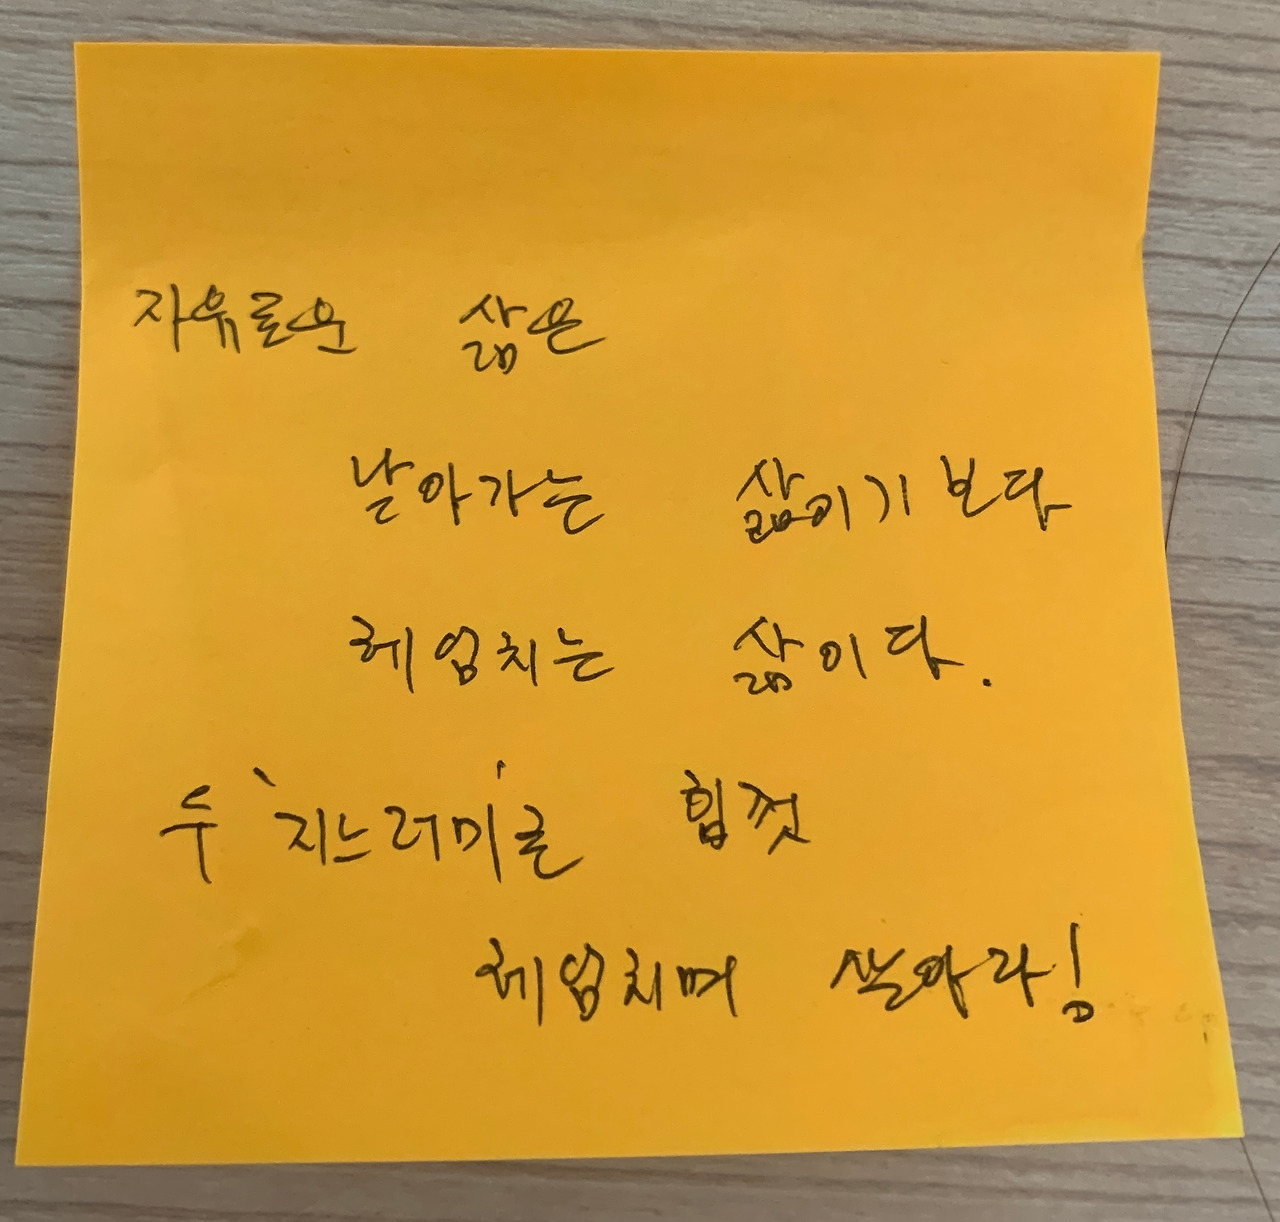 자유로운 삶은
날아가는 삶이기보다
헤엄치는 삶이다.
두 '지느러미'를 힘껏
헤엄치며 살아라!